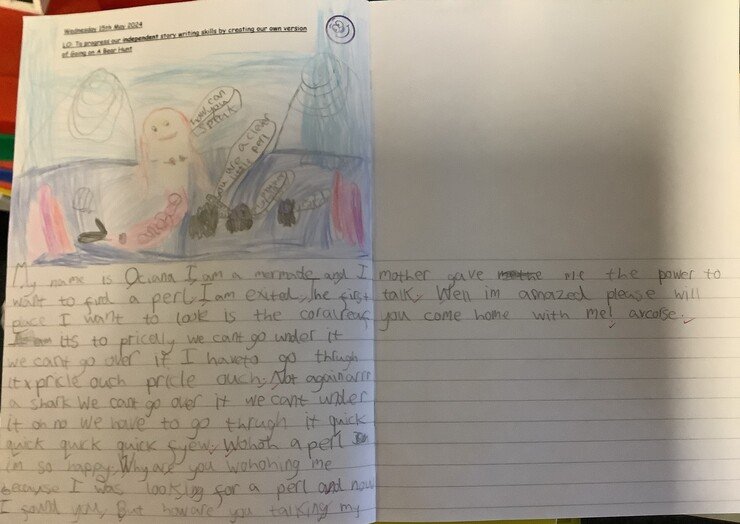 Wednesday 15th May 2024
LO: To progress our independent story writing skills by creating our own version
of Going on A Bear Hunt
how can
you
are a clever
little perl
My name is Ociana I am a mermade and I
want to find a perl. I am exited. The first
pace I want to look is the coralreaf
its to prically we cant go under it
we cant go over it I haveto go thrugh
it pricle ouch pricle ouch. Not again arrr
a shark We cant go over it we cant under
it oh no we have to go thrugh it quick
quick quick quick fyew. Wohoh a perl
im so happy. Why are you wohohing me
because I was looking for a perl and now
I found you. But how are you talking my
mother gave me the power to
talk. Wen im amazed please will
you come home with me! arcorse.